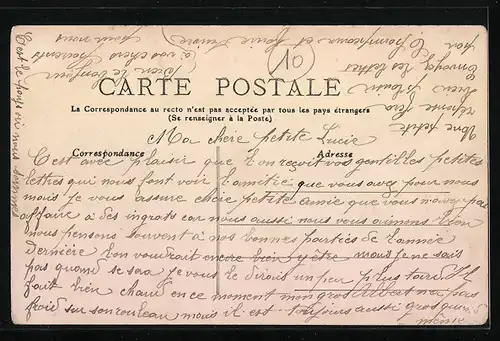 10
CARTE POSTALE
La Correspondance au recto n'est pas acceptée par tous les pays étrangers
(Se renseigner à la Poste)
Correspondance
Adresse
Ma chère petite Lucie
C'est avec plaisir que l'on reçoit vos gentilles petites
lettres qui nous font voir l'amitié que vous avez pour nous
mais je vous assure chère petite amie que vous n'avez pas
affaire à des ingrats car nous aussi nous vous aimons bien
nous pensons souvent à nos bonnes parties de l'année
dernière l'on voudrait encore bien y être mais je ne sais
pas quand se sera je vous le dirais un peu plus tard. Il
fait bien chaud en ce moment mon gros Albert n'a pas
froid sur son rouleau mais il est toujours aussi gros quand
même
Une petite
réponse fera
bien plaisir
Envoyez les lettres
par
bien le bonjour
à vos chers parents
pour nous
C'est le pays où nous sommes